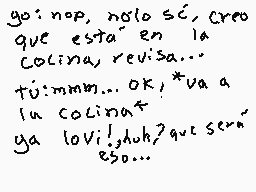 yo: nop, nolo sé, creo
que esta en la
cocina, revisa...
tú: mmm... OK, *va a
la cocina*
ya lovi!, huh,? que será
eso...